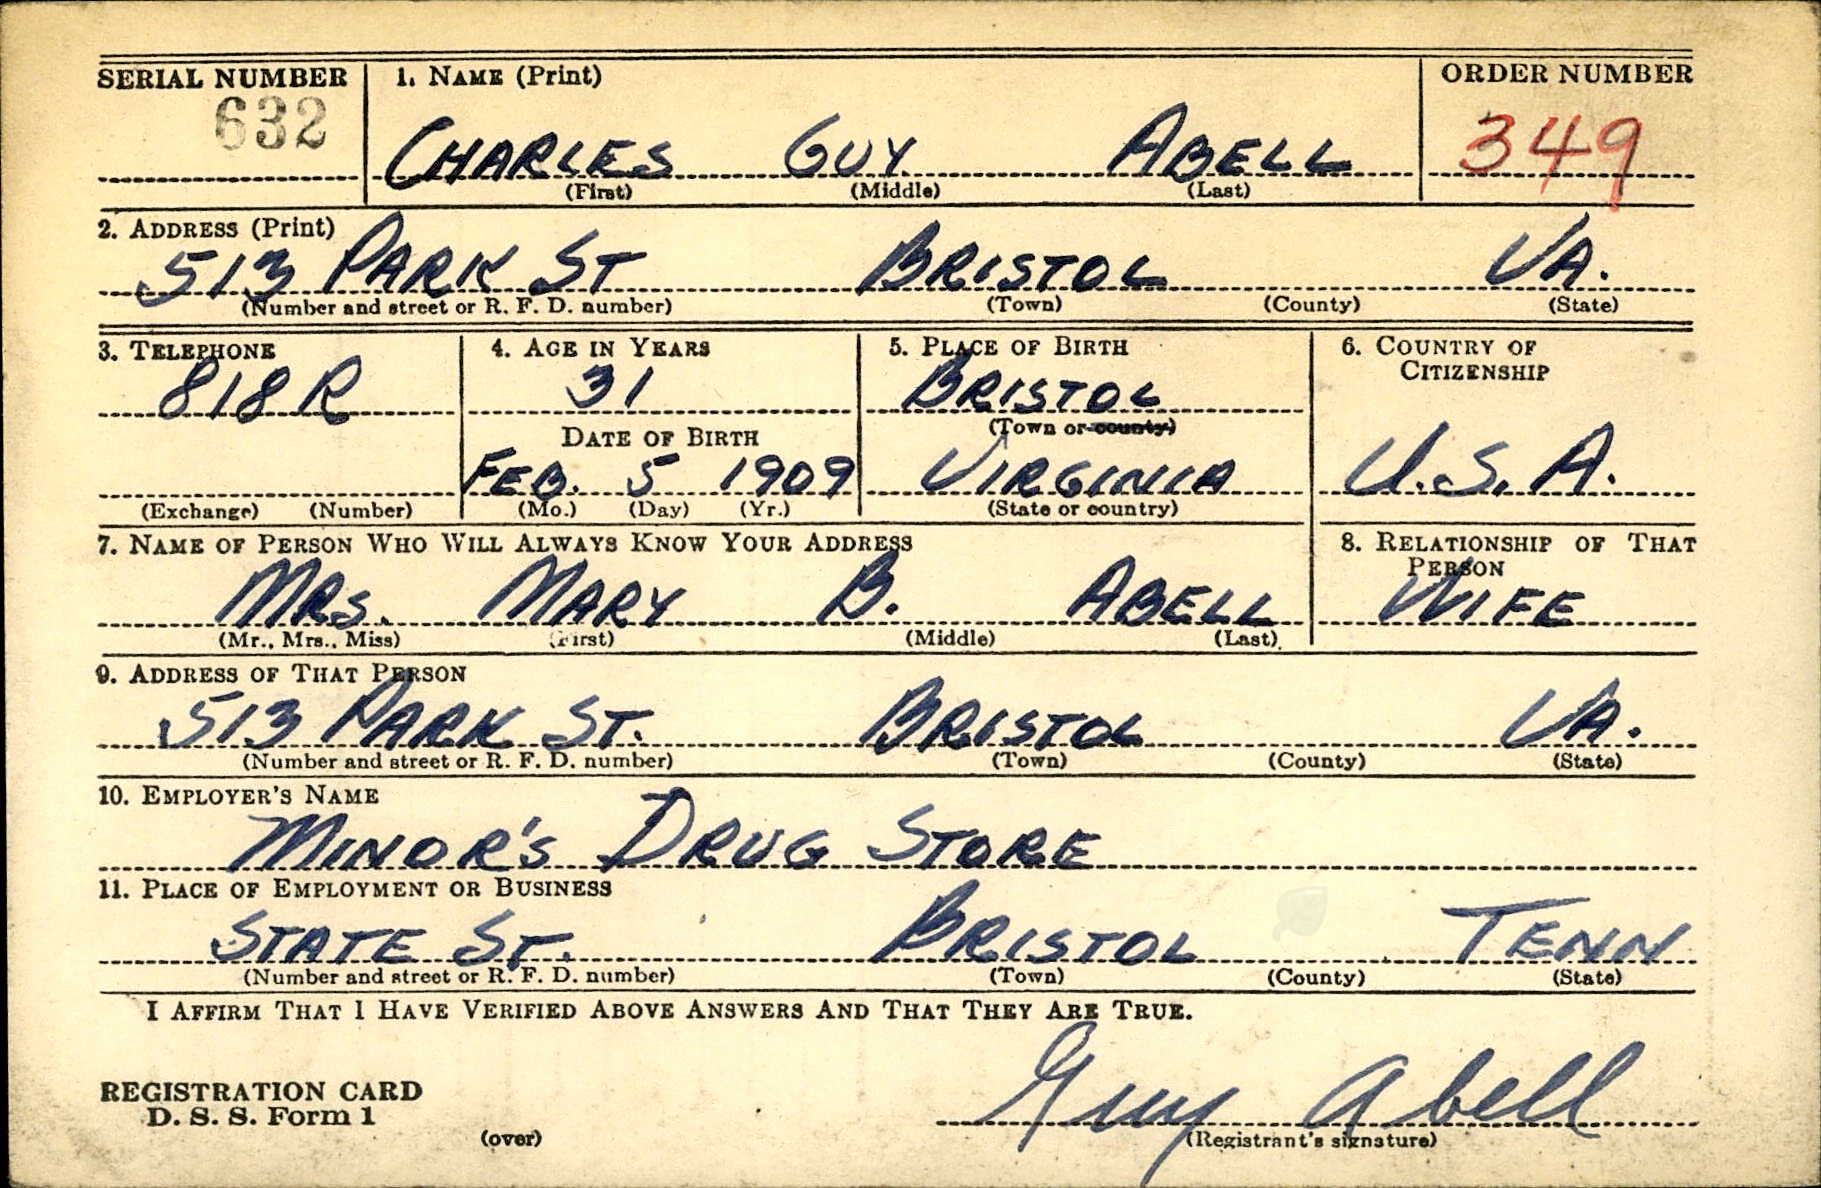 SERIAL NUMBER 1. NAME (Print) ORDER NUMBER
632 CHARLES GUY ABELL 349
(First) (Middle) (Last)
2. ADDRESS (Print)
513 PARK ST BRISTOL VA.
(Number and street or R. F. D. number) (Town) (County) (State)
3. TELEPHONE 4. AGE IN YEARS 5. PLACE OF BIRTH 6. COUNTRY OF CITIZENSHIP
818 R 31 BRISTOL
(Town or county)
DATE OF BIRTH
FEB. 5 1909 VIRGINIA U.S.A.
(Exchange) (Number) (Mo.) (Day) (Yr.) (State or country)
7. NAME OF PERSON WHO WILL ALWAYS KNOW YOUR ADDRESS 8. RELATIONSHIP OF THAT PERSON
MRS. MARY B. ABELL WIFE
(Mr., Mrs., Miss) (First) (Middle) (Last)
9. ADDRESS OF THAT PERSON
513 PARK ST. BRISTOL VA.
(Number and street or R. F. D. number) (Town) (County) (State)
10. EMPLOYER'S NAME
MINOR'S DRUG STORE
11. PLACE OF EMPLOYMENT OR BUSINESS
STATE ST. BRISTOL TENN
(Number and street or R. F. D. number) (Town) (County) (State)
I AFFIRM THAT I HAVE VERIFIED ABOVE ANSWERS AND THAT THEY ARE TRUE.
REGISTRATION CARD
D. S. S. Form 1 Guy Abell
(over) (Registrant's signature)